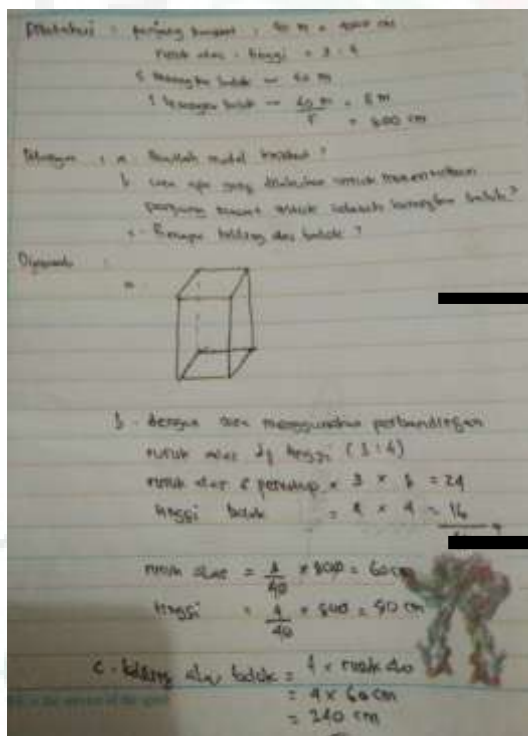 Diketahui : panjang kawat : 40 m = 4000 cm
rusuk alas : tinggi = 3 : 4
5 kerangka balok → 40 m
1 kerangka balok → 40 m / 5 = 8 m
= 800 cm
a. Buatlah model tersebut ?
b. cara apa yang dilakukan untuk menentukan
panjang kawat untuk sebuah kerangka balok ?
c. Berapa keliling alas balok ?
Dijawab :
a.
b. dengan cara menggunakan perbandingan
rusuk alas dg tinggi (3:4)
rusuk alas & penutup = 3 × 8 = 24
tinggi balok = 4 × 4 = 16
rusuk alas = 3/40 × 800 = 60 cm
tinggi = 4/40 × 800 = 80 cm
c. keliling alas balok = 4 × rusuk
= 4 × 60 cm
= 240 cm